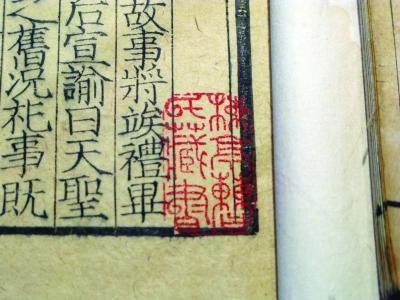 故事將竢禮畢
后宣諭曰天聖
之舊況祀事既
楝亭曹
氏藏書